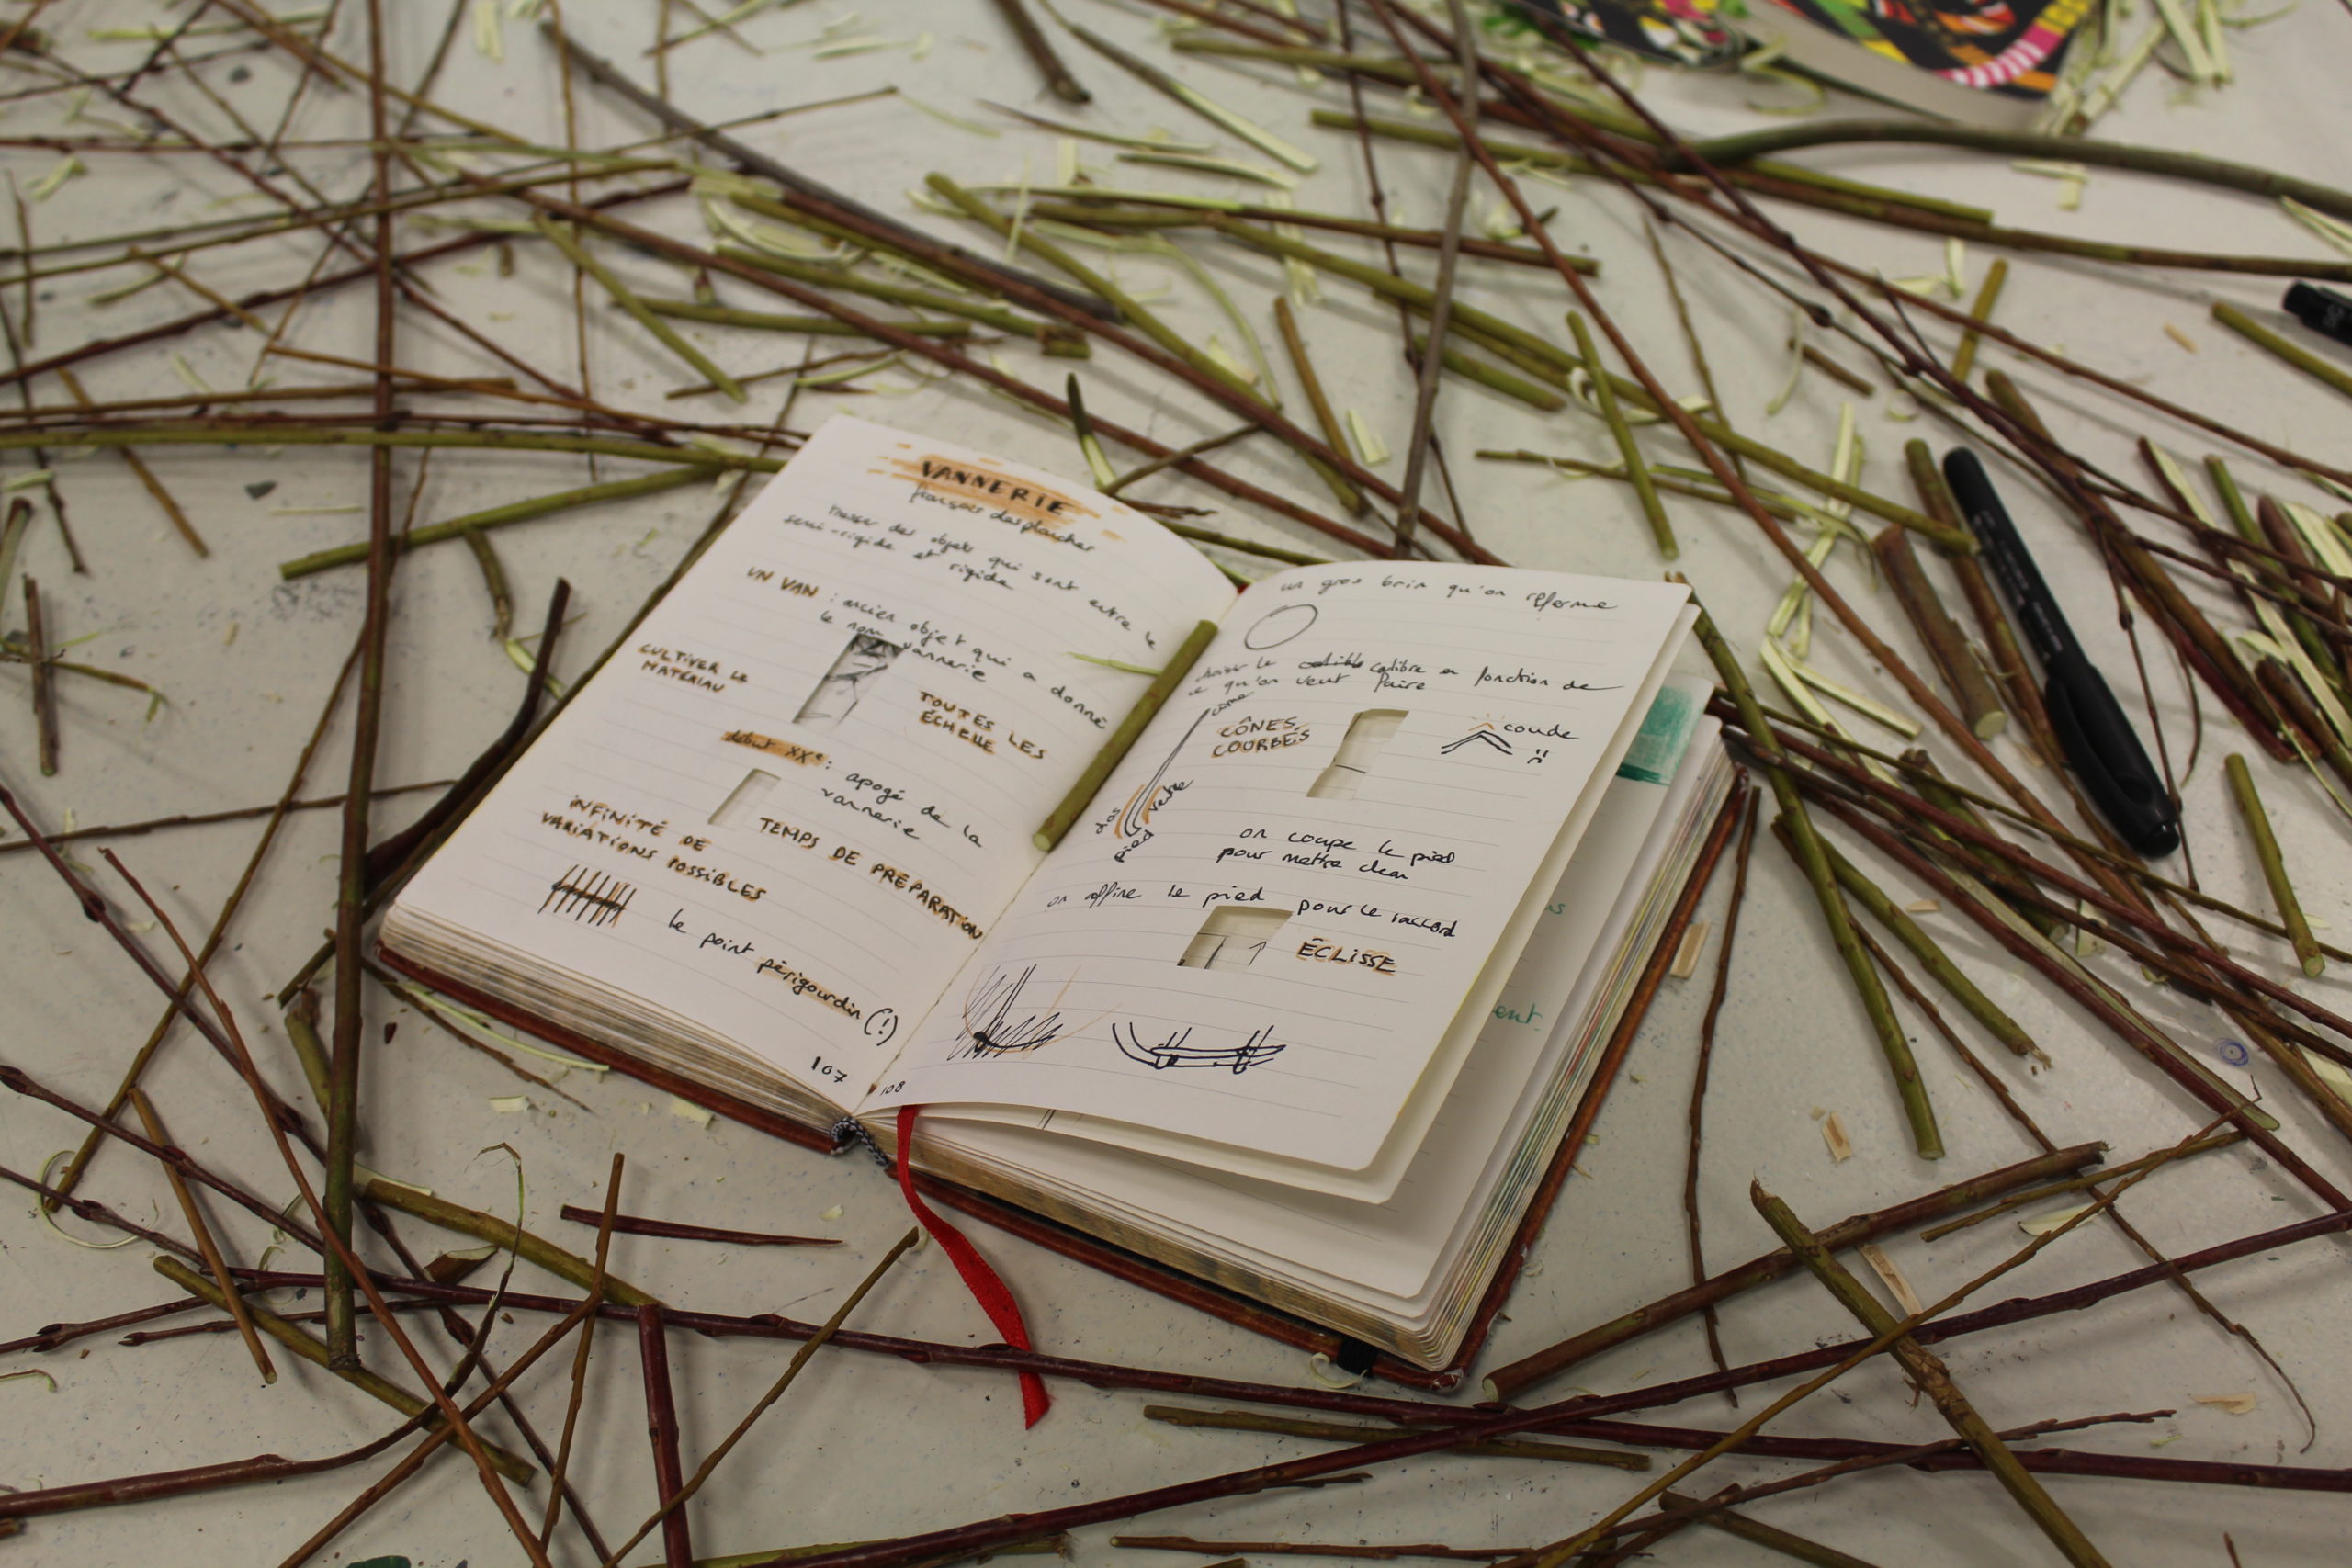 VANNERIE
françois desplanches
tresser des objets qui sont entre le
semi-rigide et rigide
UN VAN : ancien objet qui a donné
le nom vannerie
CULTIVER LE
MATÉRIAU
TOUTES LES
ÉCHELLE
début XXe : apogé de la
vannerie
INFINITÉ DE
VARIATIONS POSSIBLES
TEMPS DE PRÉPARATION
le point périgourdin (!)
107
un gros brin qu'on referme
choisir le calibre en fonction de
ce qu'on veut faire
cime
CÔNES,
COURBÉS
coude
dos
ventre
pied
on coupe le pied
pour mettre clean
on affine le pied pour le raccord
ÉCLISSE
108
ent.